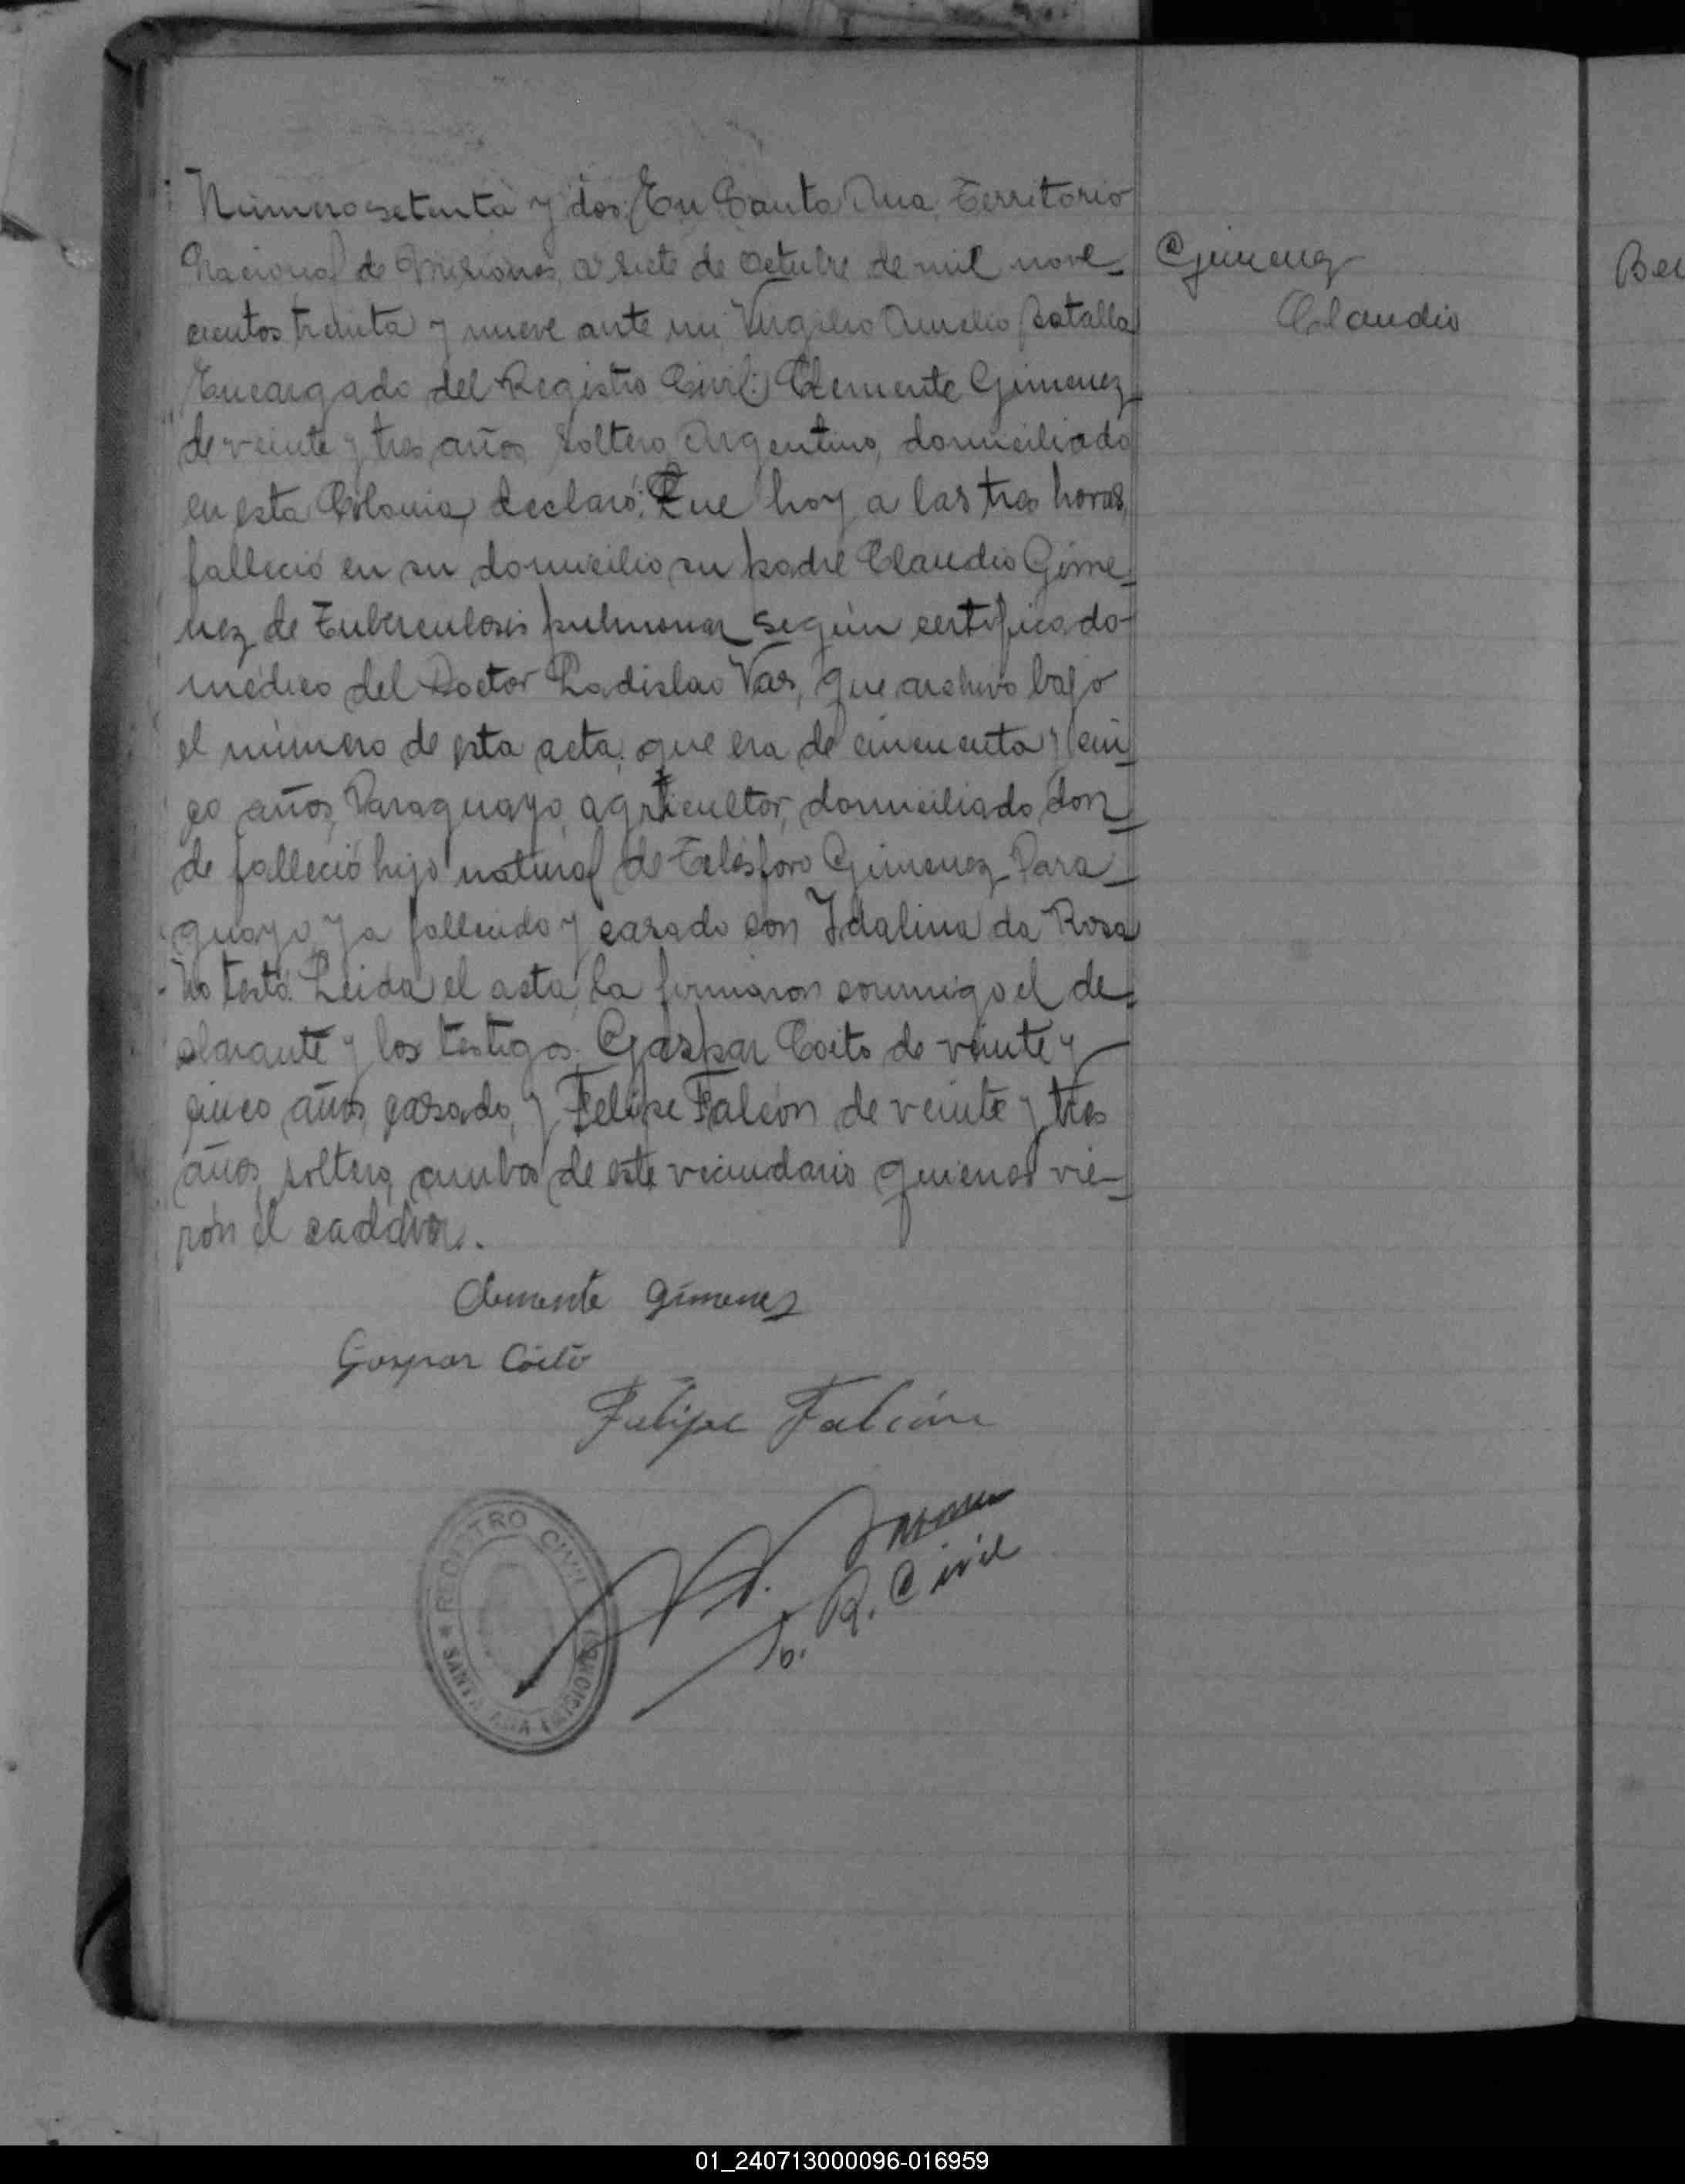 Numero setenta y dos: En Santa Ana, Territorio
Nacional de Misiones, a siete de Octubre de mil nove-
cientos treinta y nueve ante mi, Virgilio Aurelio Batalla
Encargado del Registro Civil: Clemente Gimenez
de veinte y tres años, soltero, Argentino, domiciliado
en esta Colonia, declaró: Que hoy a las tres horas,
falleció en su domicilio su padre Claudio Gime-
nez de Tuberculosis pulmonar según certificado
médico del Doctor Ladislao Vas, que archivo bajo
el número de esta acta; que era de cincuenta y cin-
co años, Paraguayo, agricultor, domiciliado don-
de falleció hijo natural de Telésforo Gimenez Para-
guayo ya fallecido y casado con Idalina da Rosa
No testó. Leida el acta, la firmaron conmigo el de-
clarante y los testigos: Gaspar Coito de veinte y
cinco años, casado, y Felipe Falcón de veinte y tres
años, soltero, ambos de este vecindario quienes vie-
ron el cadáver.
Gimenez
Claudio
Clemente Gimenez
Gaspar Coito
Felipe Falcón
R. Civil
REGISTRO CIVIL
SANTA ANA (MISIONES)
01_240713000096-016959